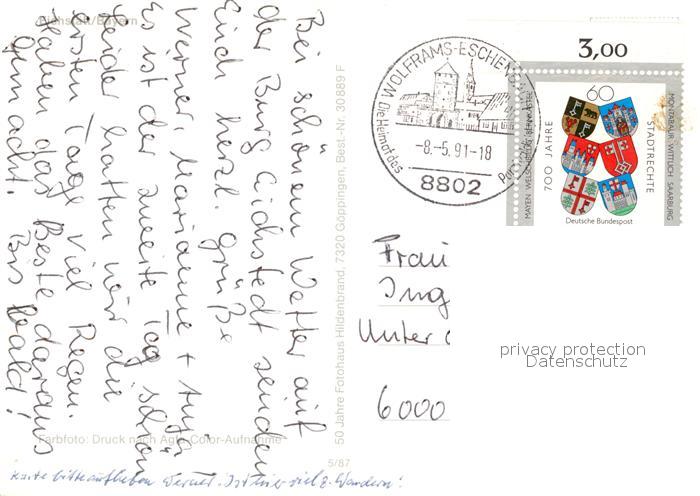 Eichstätt/Bayern
Bei schönem Wetter auf
der Burg Eichstedt senden
Euch herzl. Grüße
Werner, Marianne +
Es ist der zweite Tag schön
leider hatten wir die
ersten Tage viel Regen.
Haben das Beste daraus
gemacht. Bis bald!
Farbfoto: Druck nach Agfa-Color-Aufnahme
5/87
Karte bitte aufheben Werner. Ist hier viel z. Wandern!
50 Jahre Fotohaus Hildenbrand, 7320 Göppingen, Best.-Nr. 30 889 F
WOLFRAMS-ESCHENB
Die Heimat des
-8.-5.91-18
8802
3,00
60
700 JAHRE
STADTRECHTE
MAYEN WELSCHBILLIG BERNKASTEL
MONTABAUR WITTLICH SAARBURG
Deutsche Bundespost
Frau
Ing
Unter
6000
privacy protection
Datenschutz